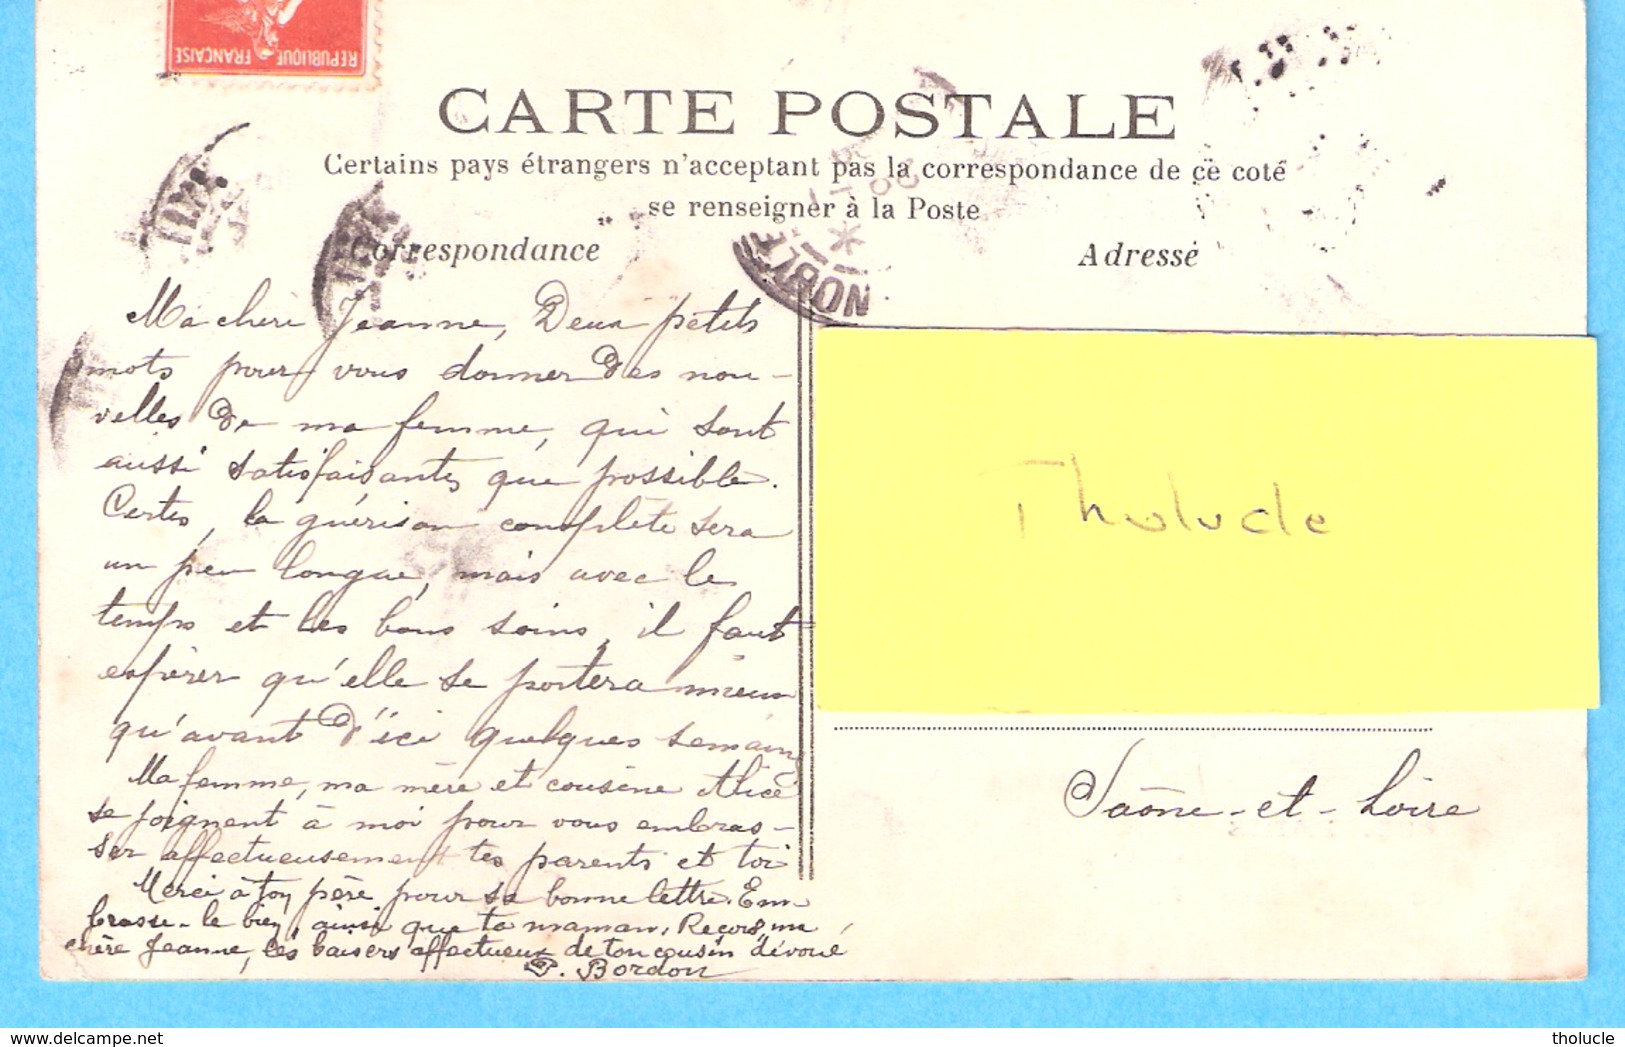 REPUBLIQUE FRANÇAISE
CARTE POSTALE
Certains pays étrangers n'acceptant pas la correspondance de ce coté
se renseigner à la Poste
Correspondance
Adresse
Ma chère Jeanne, Deux petits
mots pour vous donner des nou-
velles de ma femme, qui sont
aussi satisfaisantes que possible.
Certes, la guérison complète sera
un peu longue, mais avec le
temps et les bons soins, il faut
espérer qu'elle se portera mieux
qu'avant d'ici quelques semaines
Ma femme, ma mère et cousine Alice
se joignent à moi pour vous embras-
ser affectueusement tes parents et toi
Merci à ton père pour sa bonne lettre. Em
brasse-le bien, ainsi que ta maman. Reçois, ma
chère Jeanne, les baisers affectueux de ton cousin dévoué
P. Bordon
Tholucle
Saône-et-Loire
tholucle